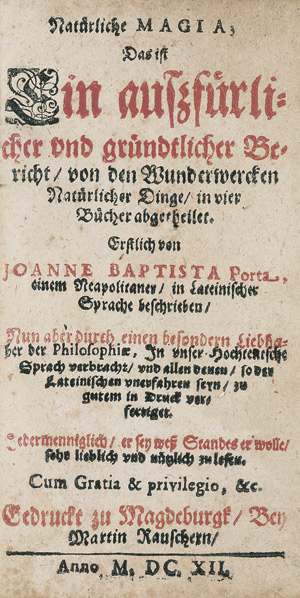 Natürliche MAGIA;
Das ist
Ein auszfürli-
cher vnd gründtlicher Be-
richt / von den Wunderwercken
Natürlicher Dinge / in vier
Bücher abgetheilet.
Erstlich von
JOANNE BAPTISTA Porta,
einem Neapolitaner / in Lateinischer
Sprache beschrieben /
Nun aber durch einen besondern Liebha-
ber der Philosophiæ, In vnser Hochteutsche
Sprach verbracht / vnd allen denen / so der
Lateinischen vnerfahren seyn / zu
gutem in Druck ver-
fertiget.
Jedermenniglich / er sey weß Standes er wolle /
sehr lieblich vnd nützlich zu lesen.
Cum Gratia & privilegio, &c.
Gedruckt zu Magdeburgk / Bey
Martin Rauschern /
Anno M. DC. XII.